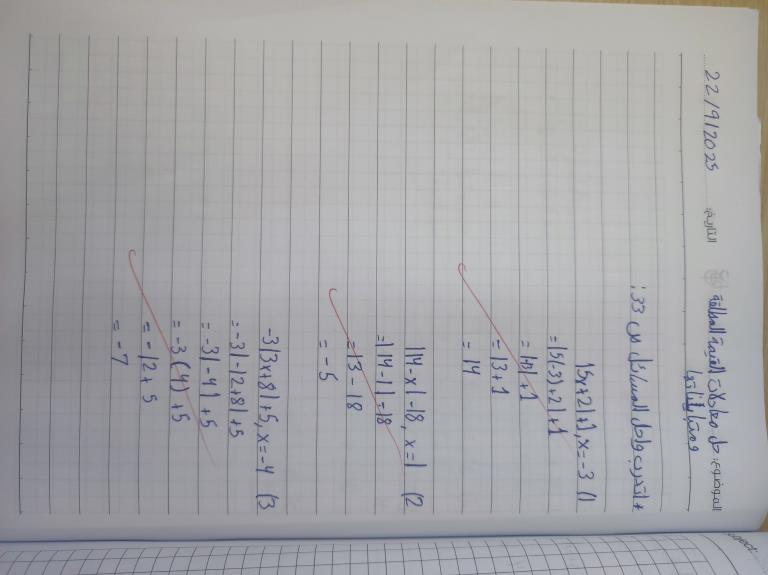 22/9/2025 التاريخ: الموضوع: حل معادلات القيمة المطلقة
ومتبايناتها
* اتدرب وأحل المسائل ص 33:
|5x+2|+1, x=-3 (1
=|5(-3)+2|+1
=|-13|+1
=13+1
=14
|14-x|-18, x=1 (2
=|14-1|-18
=13-18
=-5
-3|3x+8|+5, x=-4 (3
=-3|-12+8|+5
=-3|-4|+5
=-3(4)+5
=-12+5
=-7